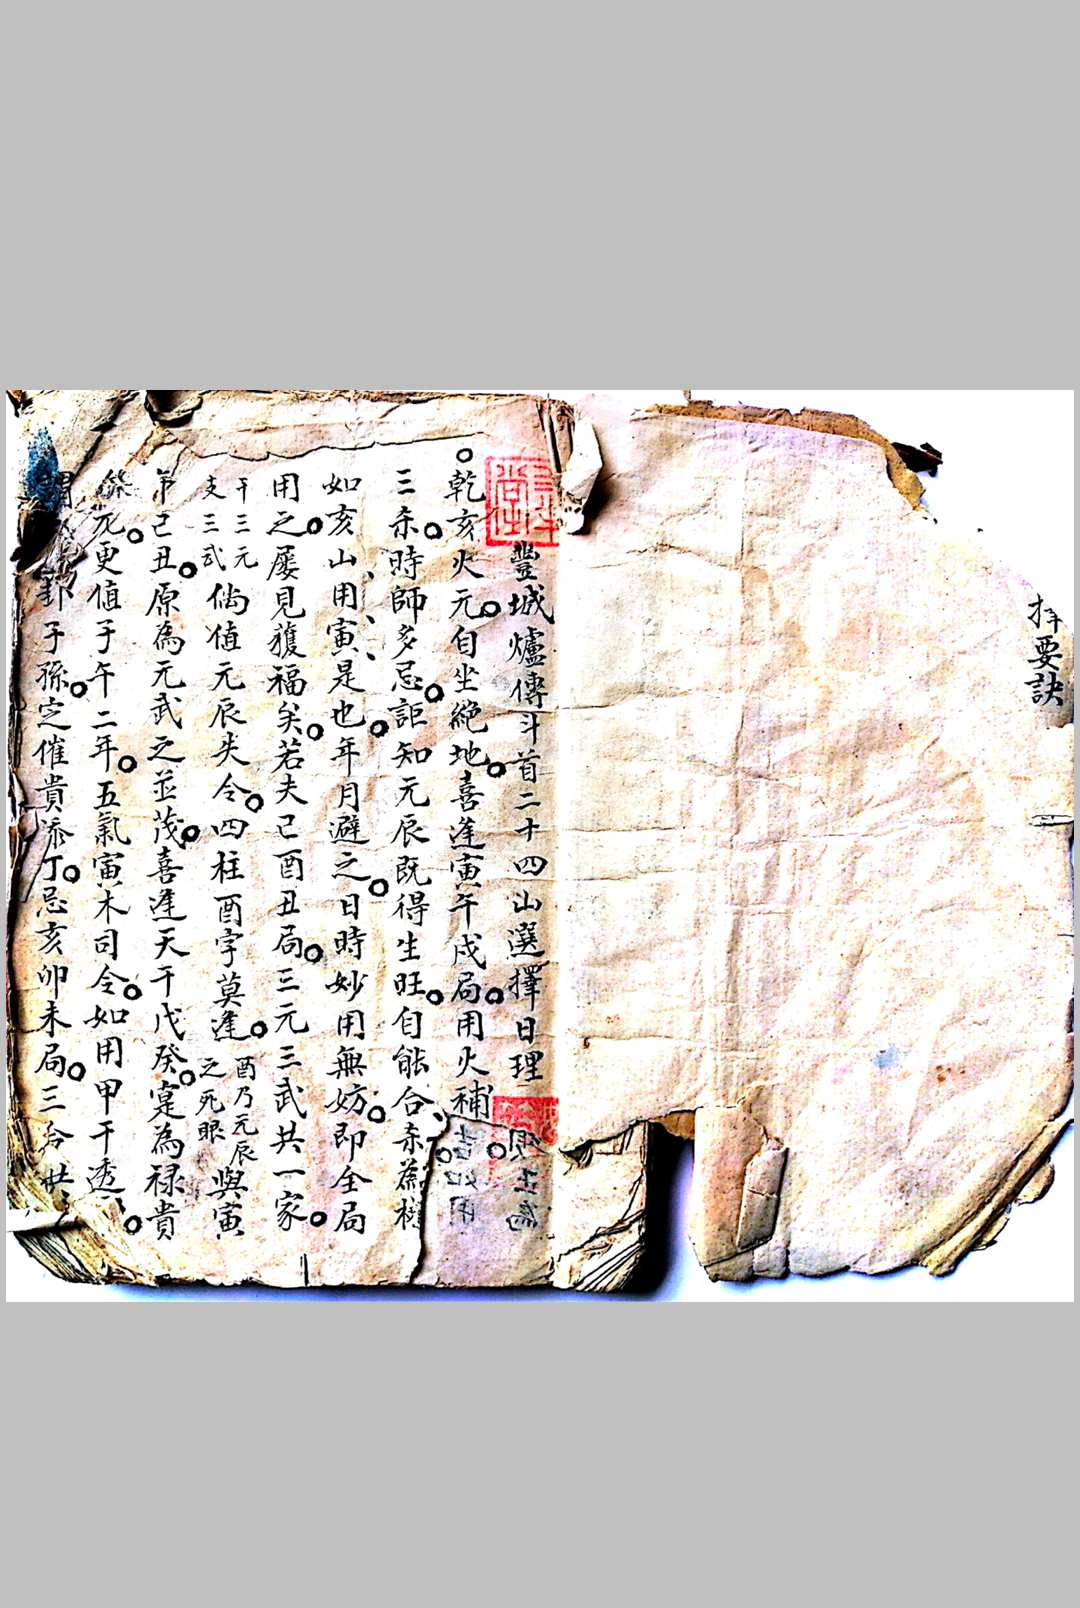 要訣
豐城爐傳斗首二十四山選擇日理
乾亥火元自坐絕地喜逢寅午戌局用火補
三杀時師多忌詎知元辰既得生旺自能合杀蔭
如亥山用寅是也年月避之日時妙用無妨即全局
用之屢見獲福矣若夫己酉丑局三元三武共一家
干三元
支三武
倘值元辰失令四柱酉字莫逢
酉乃元辰
之死眼
與寅
己丑原為元武之並茂喜逢天干戊癸寔為禄貴
死更值子午二年五氣寅木司令如用甲干透
卦子孫定催貴添丁忌亥卯未局三合